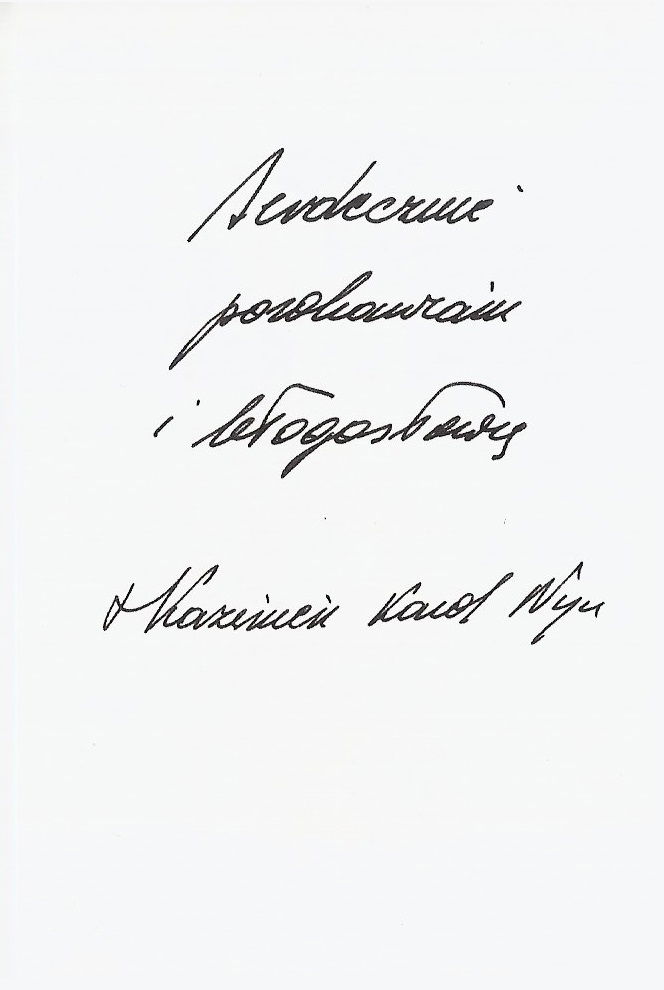 Serdecznie
pozdrawiam
i błogosławię
+ Kazimierz Karol Nycz